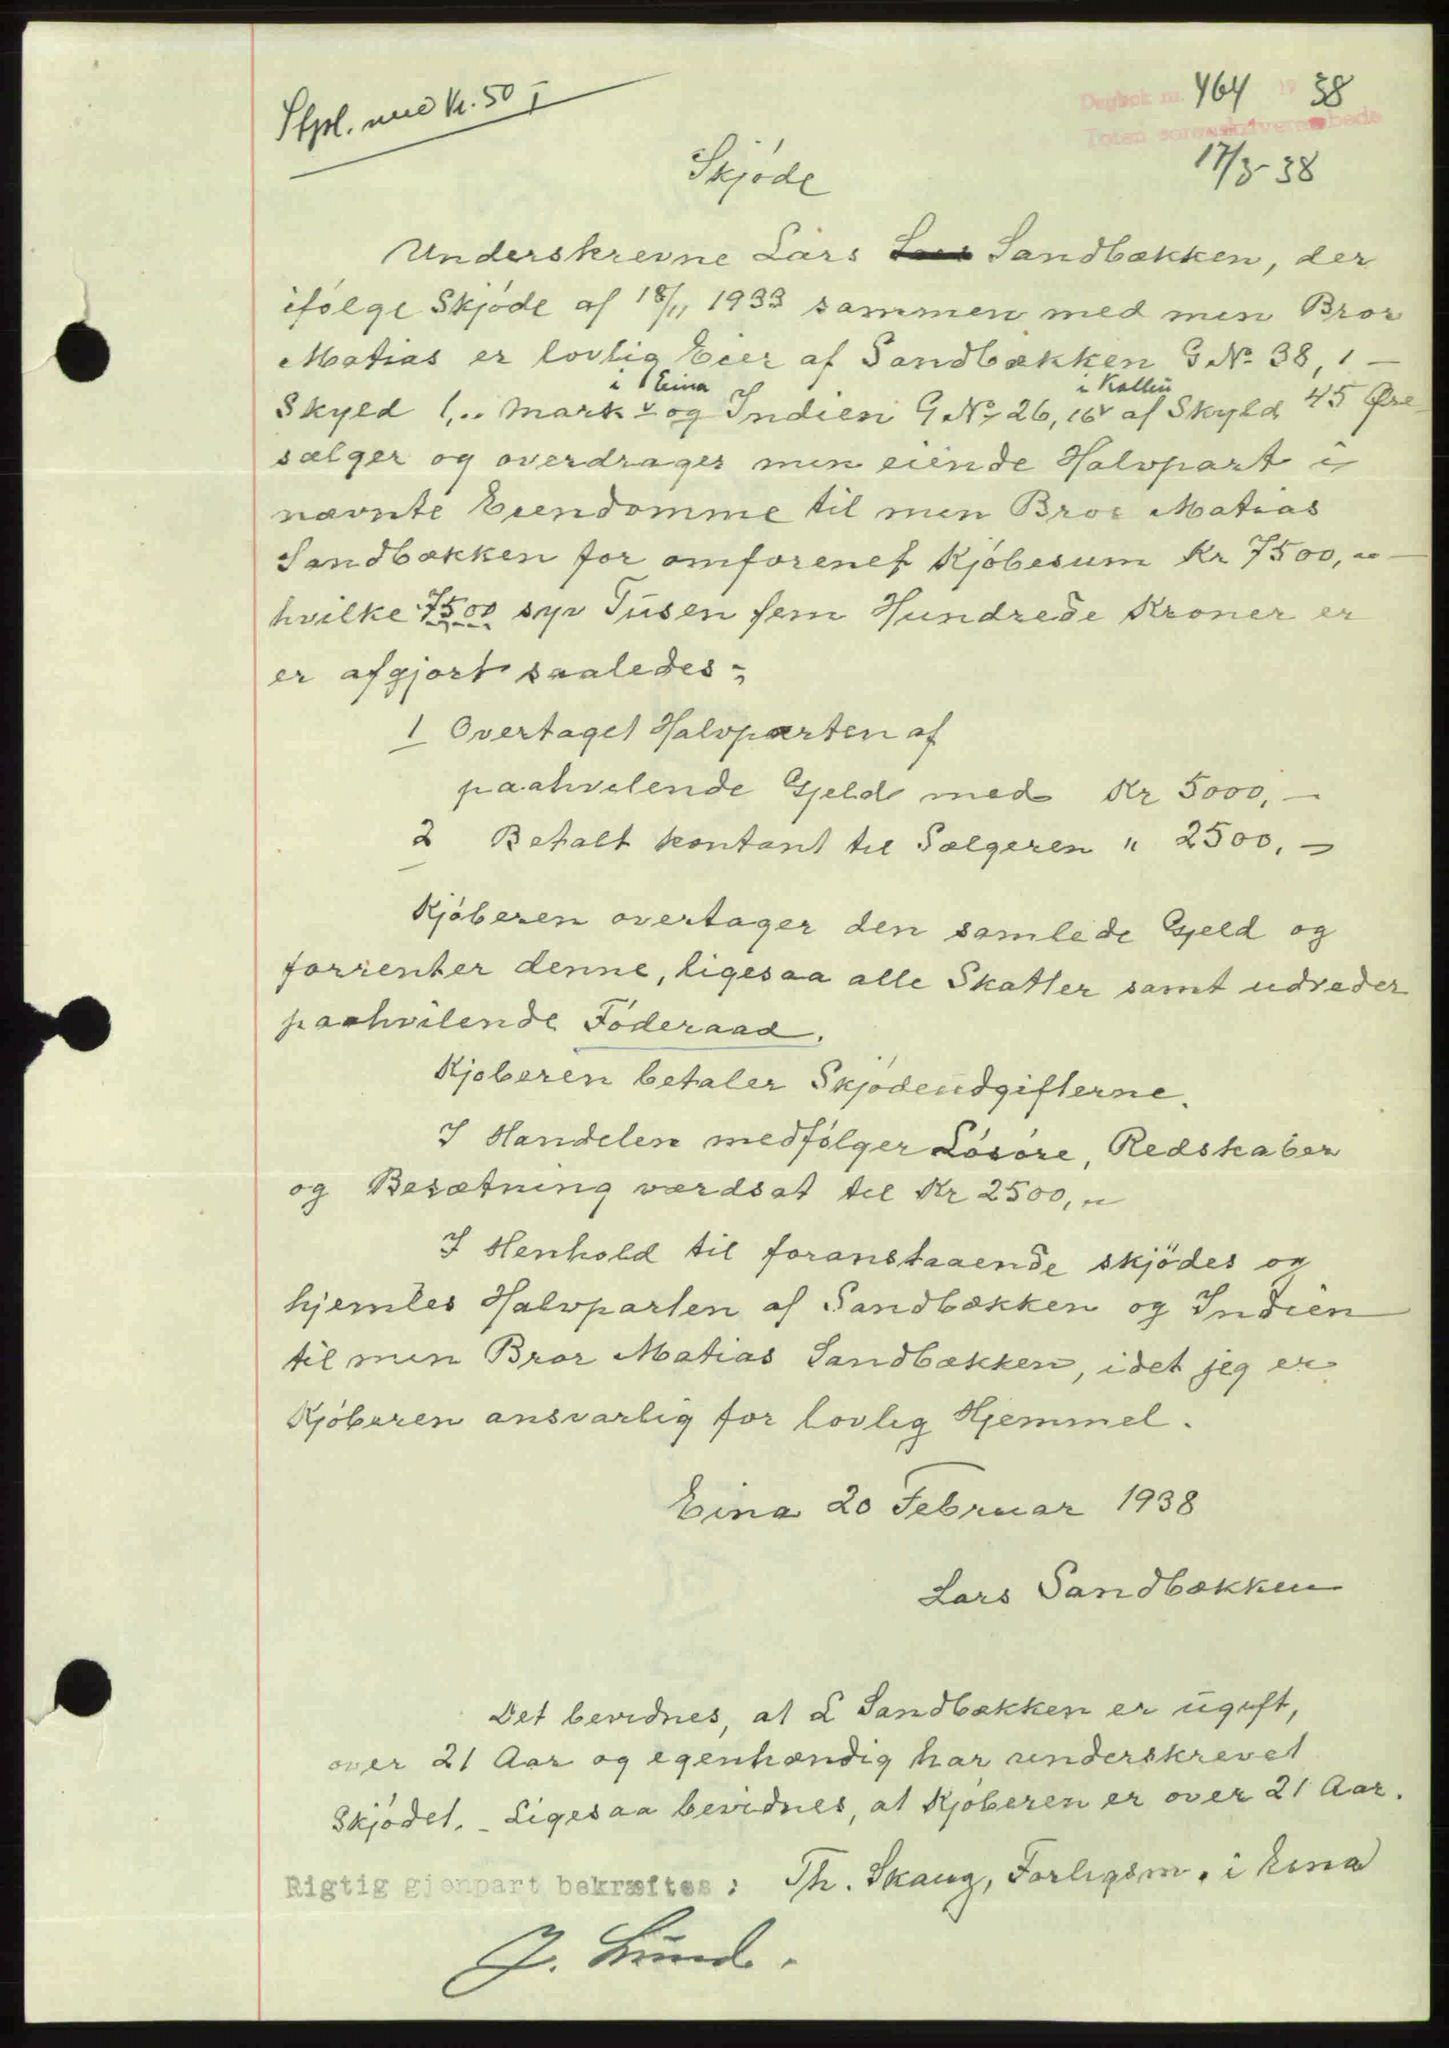 Stpl. med Kr. 50
Dagbok nr. 464 19 38
Toten sorenskriverembede
17/3-38
Skjöde
Underskrevne Lars Lars Sandbækken, der
ifölge Skjöde af 18/11 1933 sammen med min Bror
Matias er lovlig Eier af Sandbækken G.No. 38, 1 –
i Eina i Kolbu
Skyld 1,.. Mark v og Indien G No 26, 16 v af Skyld 45 Øre
sælger og overdrager min eiende Halvpart i
nævnte Eiendomme til min Bror Matias
Sandbækken for omforenet Kjöbesum Kr 7500,.. –
hvilke 7500 syv Tusen fem Hundrede Kroner er
er afgjort saaledes:
1 Overtaget Halvparten af
paahvilende Gjeld med Kr 5000, –
2 Betalt kontant til Sælgeren " 2500, –
Kjöberen overtager den samlede Gjeld og
forrenter denne, ligesaa alle Skatter samt udreder
paahvilende Föderaad.
Kjøberen betaler Skjödeudgifterne.
I Handelen medfölger Lösöre, Redskaber
og Besætning værdsat til Kr 2500,..
I Henhold til foranstaaende skjödes og
hjemles Halvparten af Sandbækken og Indien
til min Bror Matias Sandbækken, idet jeg er
Kjöberen ansvarlig for lovlig Hjemmel.
Eina 20 Februar 1938
Lars Sandbækken
Det bevidnes, at L Sandbækken er ugift,
over 21 Aar og egenhændig har underskrevet
Skjödet. – Ligesaa bevidnes, at Kjöberen er over 21 Aar.
Rigtig gjenpart bekræftes: Th. Skaug, Forligsm. i Eina
J. Lund.